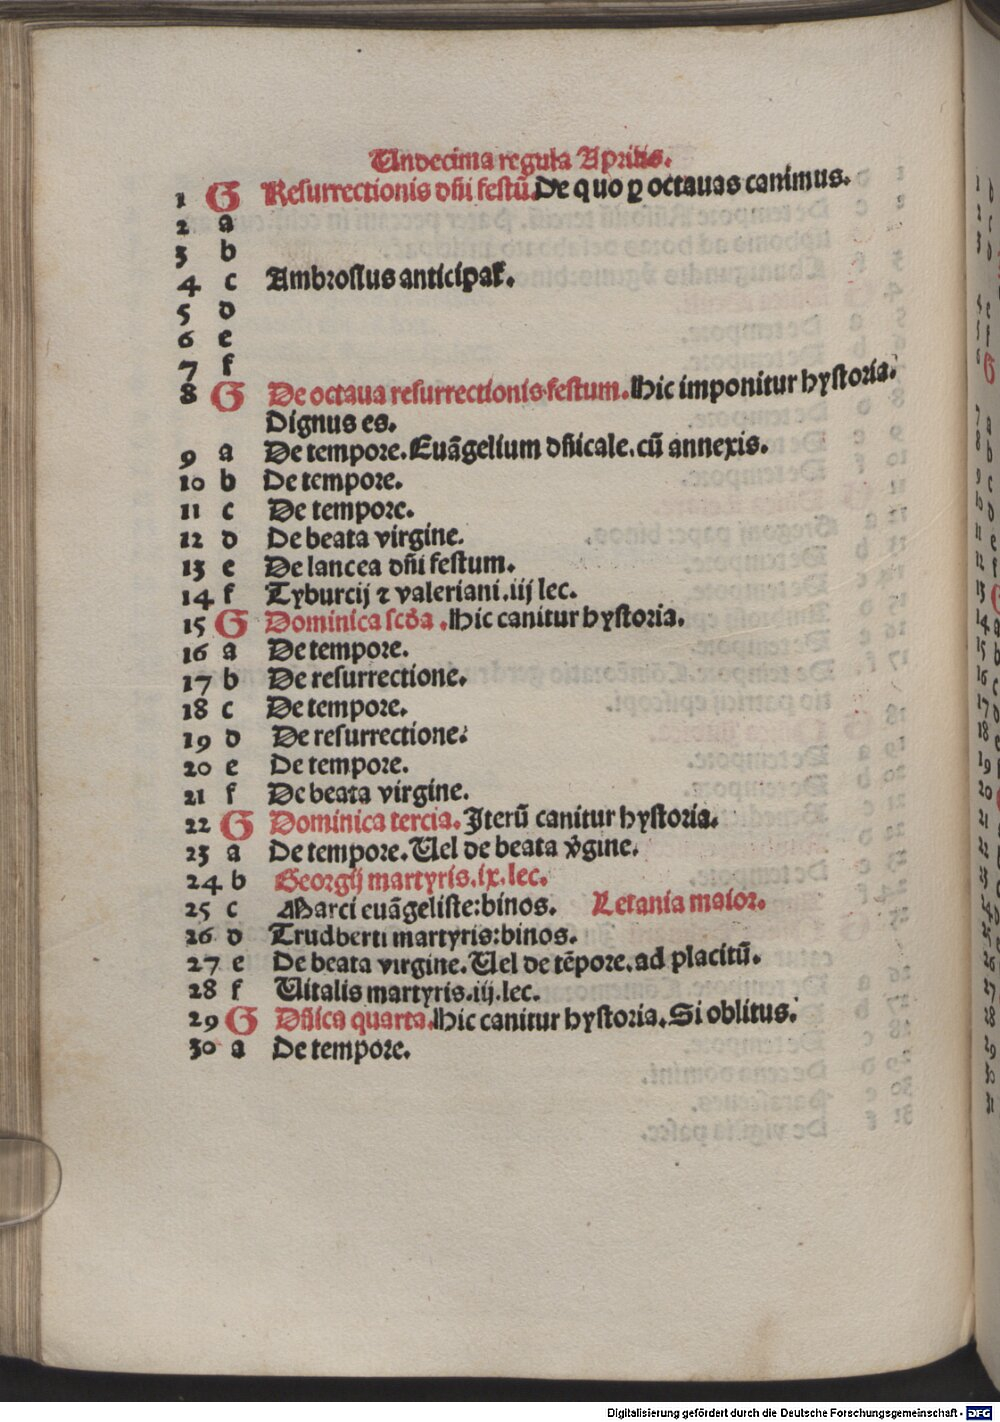 Undecima regula Aprilis.
1 G Resurrectionis dñi festũ. De quo ꝑ octauas canimus.
2 a
3 b
4 c Ambrosius anticipat̃.
5 d
6 e
7 f
8 G De octaua resurrectionis festum. Hic imponitur hystoria.
Dignus es.
9 a De tempore. Euãgelium dñicale. cũ annexis.
10 b De tempore.
11 c De tempore.
12 d De beata virgine.
13 e De lancea dñi festum.
14 f Tyburcij ⁊ valeriani. iij lec.
15 G Dominica scďa. Hic canitur hystoria.
16 a De tempore.
17 b De resurrectione.
18 c De tempore.
19 d De resurrectione.
20 e De tempore.
21 f De beata virgine.
22 G Dominica tercia. Iterũ canitur hystoria.
23 a De tempore. Uel de beata v̉gine.
24 b Georgij martyris. ix. lec.
25 c Marci euãgeliste: binos. Letania maior.
26 d Trudberti martyris: binos.
27 e De beata virgine. Uel de tẽpore. ad placitũ.
28 f Uitalis martyris. iij. lec.
29 G Dñica quarta. Hic canitur hystoria. Si oblitus.
30 a De tempore.
Digitalisierung gefördert durch die Deutsche Forschungsgemeinschaft - DFG